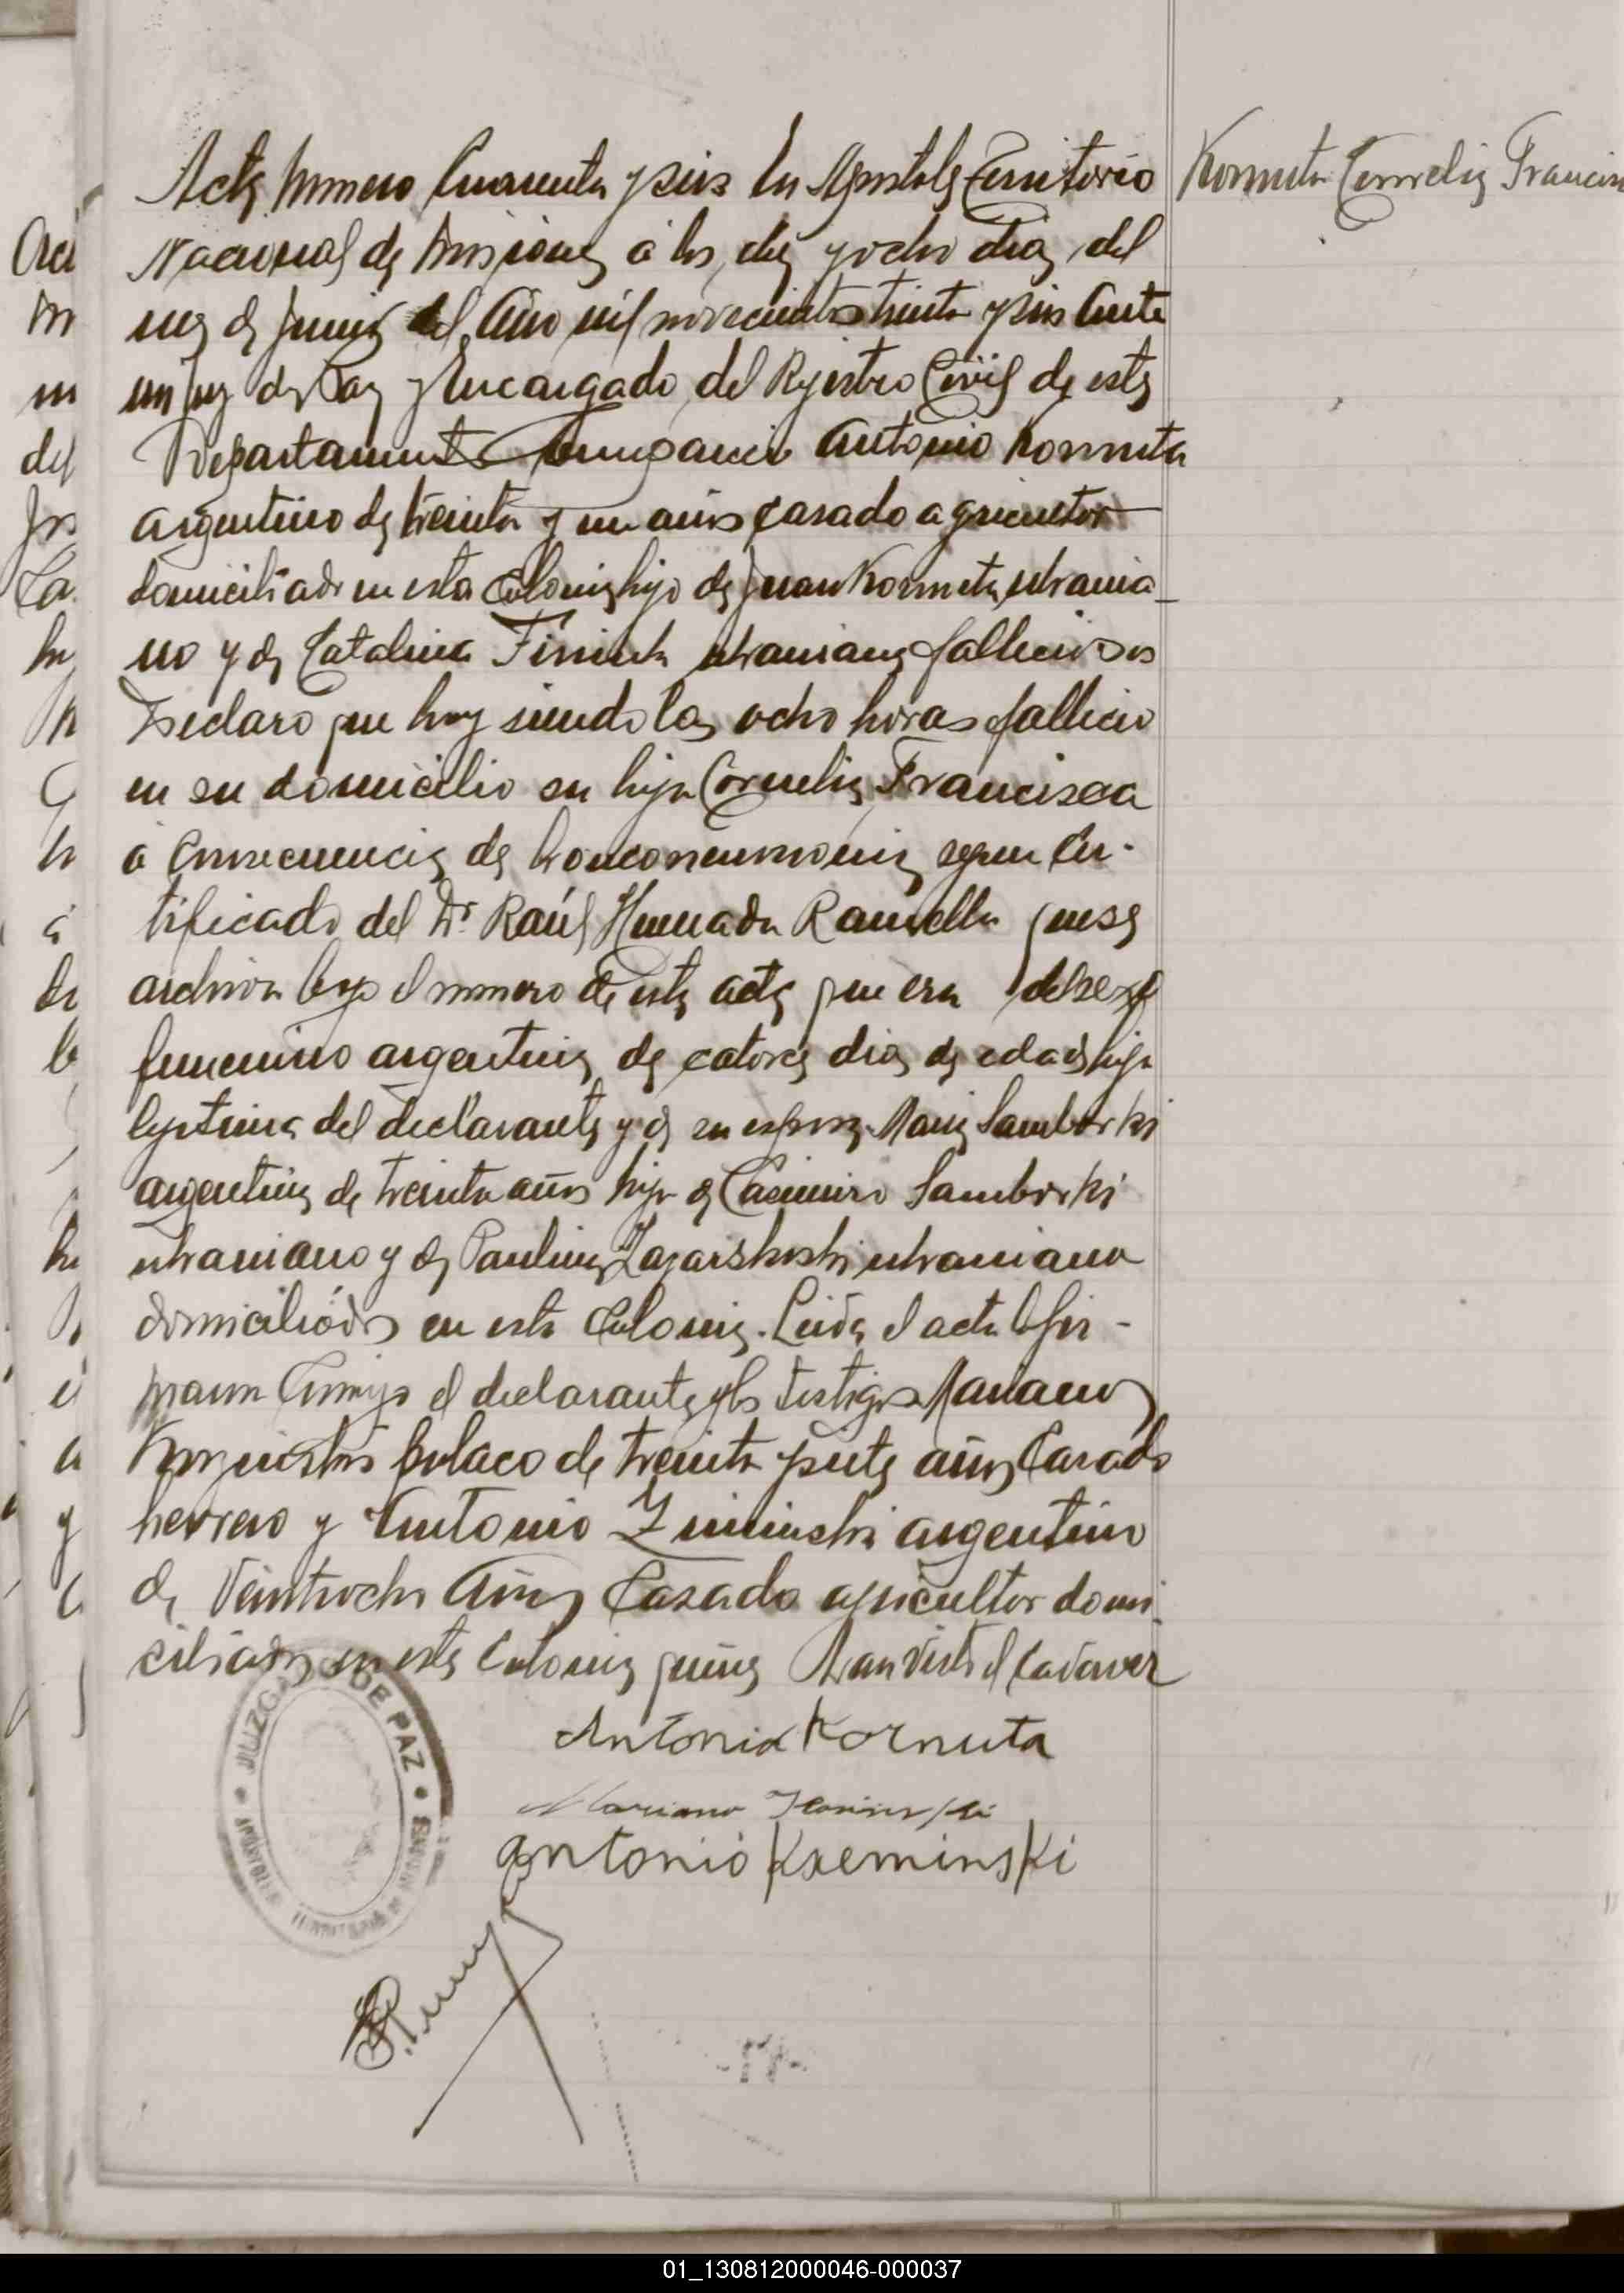 Acta numero Cuarenta y seis En Apostoles Territorio
Nacional de Misiones á los diez y ocho dias del
mes de Junio del Año mil novecientos treinta y seis Ante
mi Juez de Paz y Encargado del Rejistro Civil de este
Departamento Comparecio Antonio Kornuta
argentino de treinta y un años casado agricultor
domiciliado en esta Colonia hijo de Juan Kornuta ukrania-
no y de Catalina ukraniana fallecidos
Declaro que hoy siendo las ocho horas fallecio
en su domicilio su hija Cornelia Francisca
á Consecuencia de bronconeumonia segun Cer-
tificado del Dr. Raúl Ramella que se
archiva bajo el numero de esta acta que era del sexo
femenino argentina de catorce dias de edad hija
lejitima del declarante y de su esposa Maria Samborki
argentina de treinta años hija de Casimiro Samborki
ukraniano y de Paulina ukraniana
domiciliados en esta Colonia. Leida el acta la fir-
maron Conmigo el declarante y los testigos Mariano
polaco de treinta y siete años Casado
herrero y Antonio argentino
de Veintiocho Años Casado agricultor domi-
ciliados en esta Colonia quienes han visto el cadaver
Antonio Kornuta
Mariano
Antonio Kzeminski
Kornuta Cornelia Francis
JUZGADO DE PAZ
APOSTOLES
01_130812000046-000037